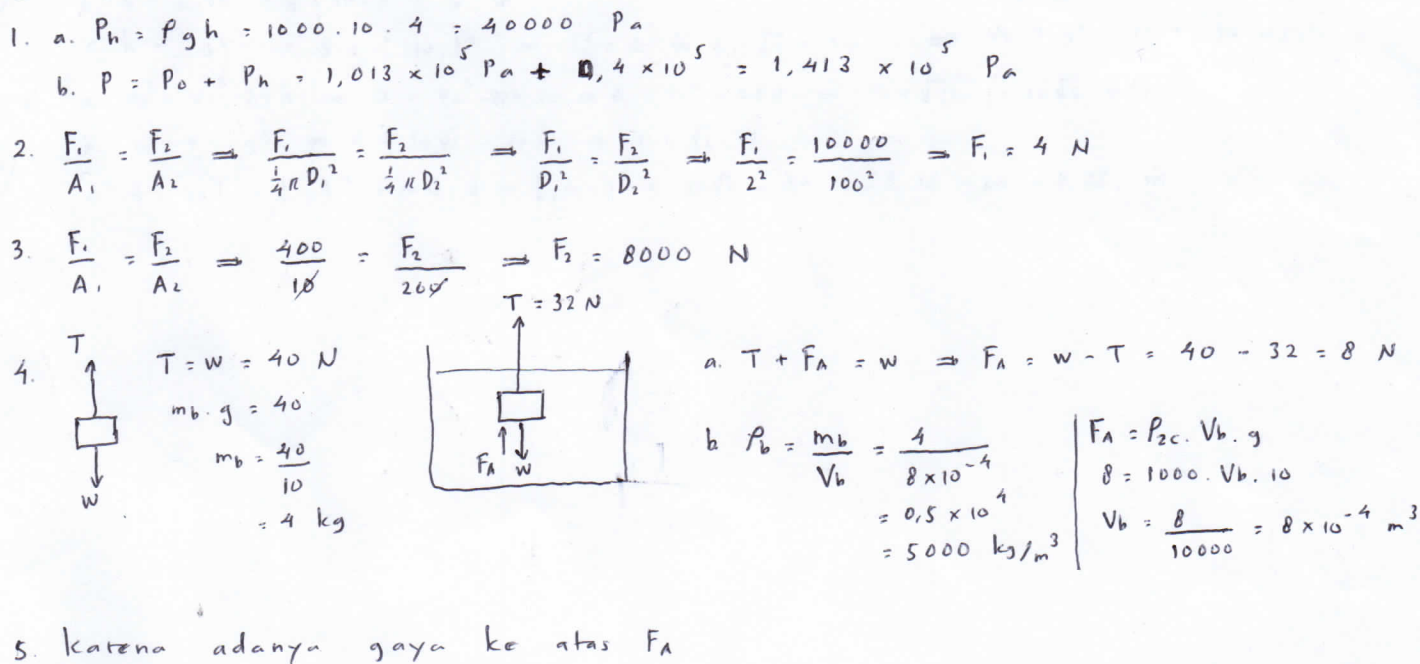 1. a. Ph = ρgh = 1000 . 10 . 4 = 40000 Pa
b. P = P₀ + Ph = 1,013 × 10⁵ Pa + 0,4 × 10⁵ = 1,413 × 10⁵ Pa
2. F₁/A₁ = F₂/A₂ ⇒ F₁/(¼πD₁²) = F₂/(¼πD₂²) ⇒ F₁/D₁² = F₂/D₂² ⇒ F₁/2² = 10000/100² ⇒ F₁ = 4 N
3. F₁/A₁ = F₂/A₂ ⇒ 400/10 = F₂/200 ⇒ F₂ = 8000 N
4.
T
w
T = w = 40 N
mb . g = 40
mb = 40/10
= 4 kg
T = 32 N
FA w
a. T + FA = w ⇒ FA = w - T = 40 - 32 = 8 N
b ρb = mb/Vb = 4/(8 × 10⁻⁴)
= 0,5 × 10⁴
= 5000 kg/m³
FA = ρzc . Vb . g
8 = 1000 . Vb . 10
Vb = 8/10000 = 8 × 10⁻⁴ m³
5. karena adanya gaya ke atas FA